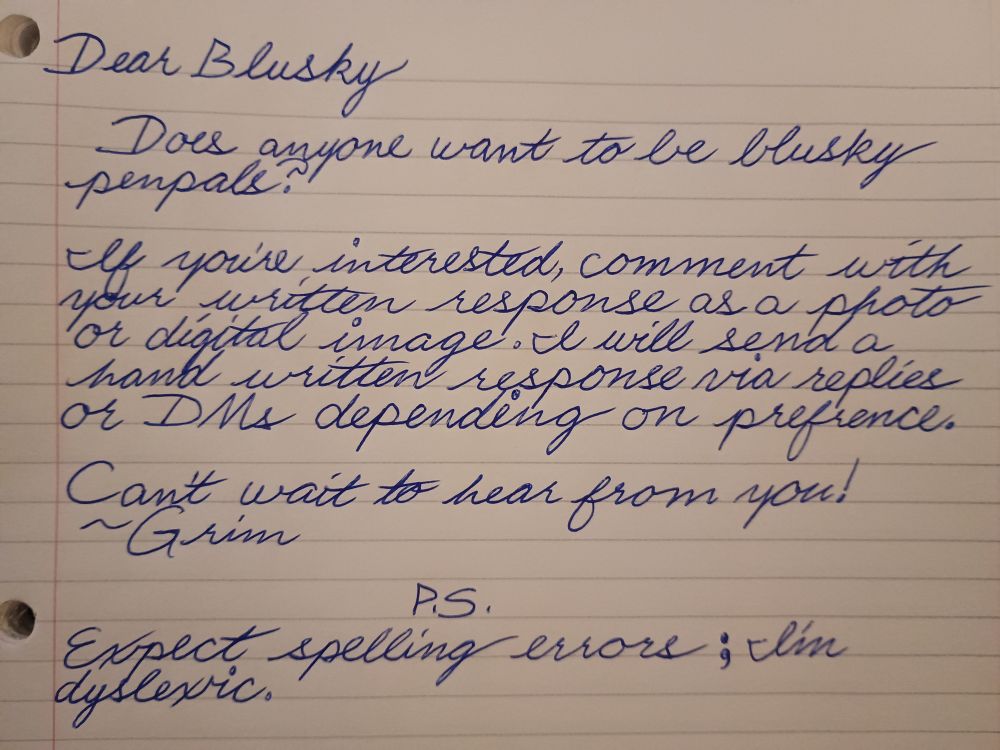 Dear Blusky
Does anyone want to be blusky
penpals?
If you're interested, comment with
your written response as a photo
or digital image. I will send a
hand written response via replies
or DMs depending on prefrence.
Can't wait to hear from you!
~Grim
P.S.
Expect spelling errors; I'm
dyslexic.